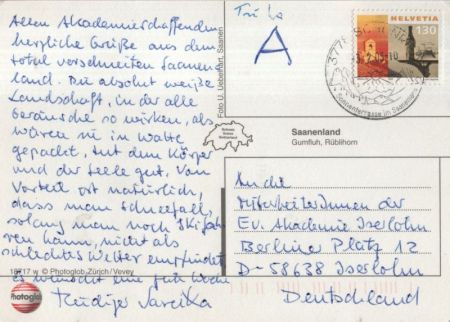 Allen Akademieschaffenden
herzliche Grüße aus dem
total verschneiten Saanen-
land. Die absolut weiße
Landschaft, in der alle
Geräusche so wirken, als
wären sie in Watte
gepackt, tut dem Körper
und der Seele gut. Von
Vorteil ist natürlich,
dass man Schneefall,
solang man noch Ski fah-
ren kann, nicht als
schlechtes Wetter empfindet.
Es wünscht eine gute Woche
Rüdiger
18717 w © Photoglob-Zürich / Vevey
Photoglob
Foto U. Ueberhart, Saanen
A
HELVETIA
130
Saanenland
Gumfluh, Rüblihorn
An die
MitarbeiterInnen der
Ev. Akademie Iserlohn
Berliner Platz 12
D-58638 Iserlohn
Deutschland